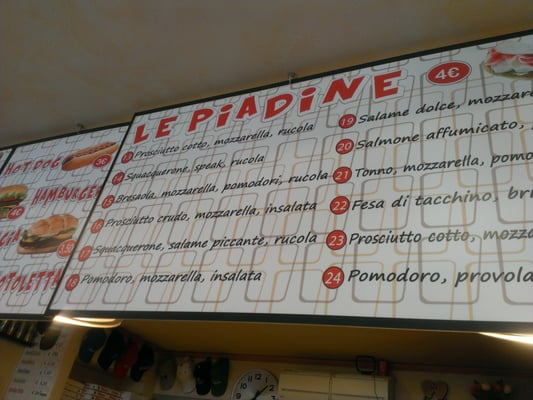 HOT DOG
3€
HAMBURGER
4€
3,50
LE PiADiNE
4€
13 Prosciutto cotto, mozzarella, rucola
14 Squacquerone, speak, rucola
15 Bresaola, mozzarella, pomodori, rucola
16 Prosciutto crudo, mozzarella, insalata
17 Squacquerone, salame piccante, rucola
18 Pomodoro, mozzarella, insalata
19 Salame dolce, mozzare
20 Salmone affumicato,
21 Tonno, mozzarella, pomo
22 Fesa di tacchino, bri
23 Prosciutto cotto, mozza
24 Pomodoro, provola